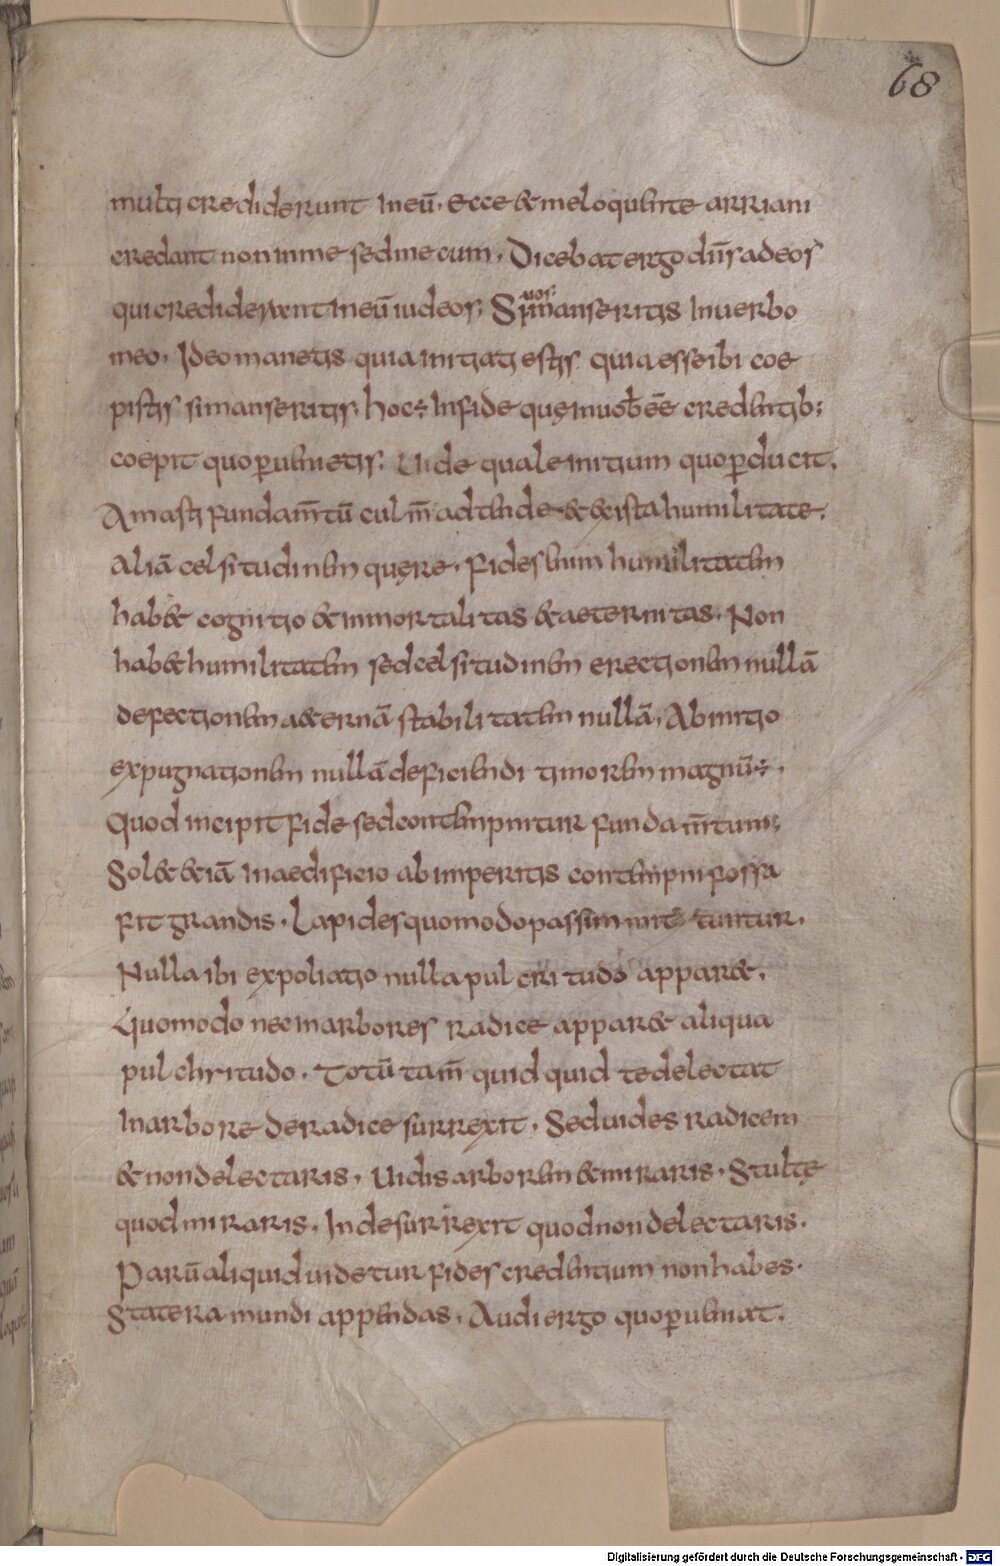 68
multi crediderunt in eū. Ecce & me loquente arriani
credant non in me sed mecum. Dicebat ergo dn̄s ad eos
qui crediderunt in eū iudeos; Si vos
p̄manseritis In uerbo
meo. Ideo manetis quia initiati estis quia esse ibi coe
pistis si manseritis. hoc÷ In fide quę in uob̄ eē̄ credentib;
coepit quo ꝑuenietis. Uide quale initium quo ꝑducit.
Amasti fundam̄tū culm̄ adtende & ex ista humilitate.
Aliā celsitudinem quęre. fides enim humilitatem
hab& cognitio & inmortalitas & aeternitas. Non
hab& humilitatem sed celsitudinem erectionem nullā
defectionem a&ernā stabilitatem nullā. Ab initio
expugnationem nullā deficiendi timorem magnū÷.
Quod incipit fide sed contempnitur fundam̄tum;
Sol& &iā In aedificio ab imperitis contempni fossa
fit grandis. Lapides quomodo passim mit tuntur.
Nulla ibi expoliatio nulla pulcritudo appar&.
Quomodo nec in arbores radice appar& aliqua
pulchritudo. Totū tam̄ quid quid te delectat
In arbore de radice surrexit. Sed uides radicem
& non delectaris. Uidis arborem & miraris. Stultę
quod miraris. Inde surrexit quod non delectaris.
Parū aliquid uidetur fides credentium non habes.
Statera mundi appendas. Audi ergo quo ꝑueniat.
Digitalisierung gefördert durch die Deutsche Forschungsgemeinschaft - DFG